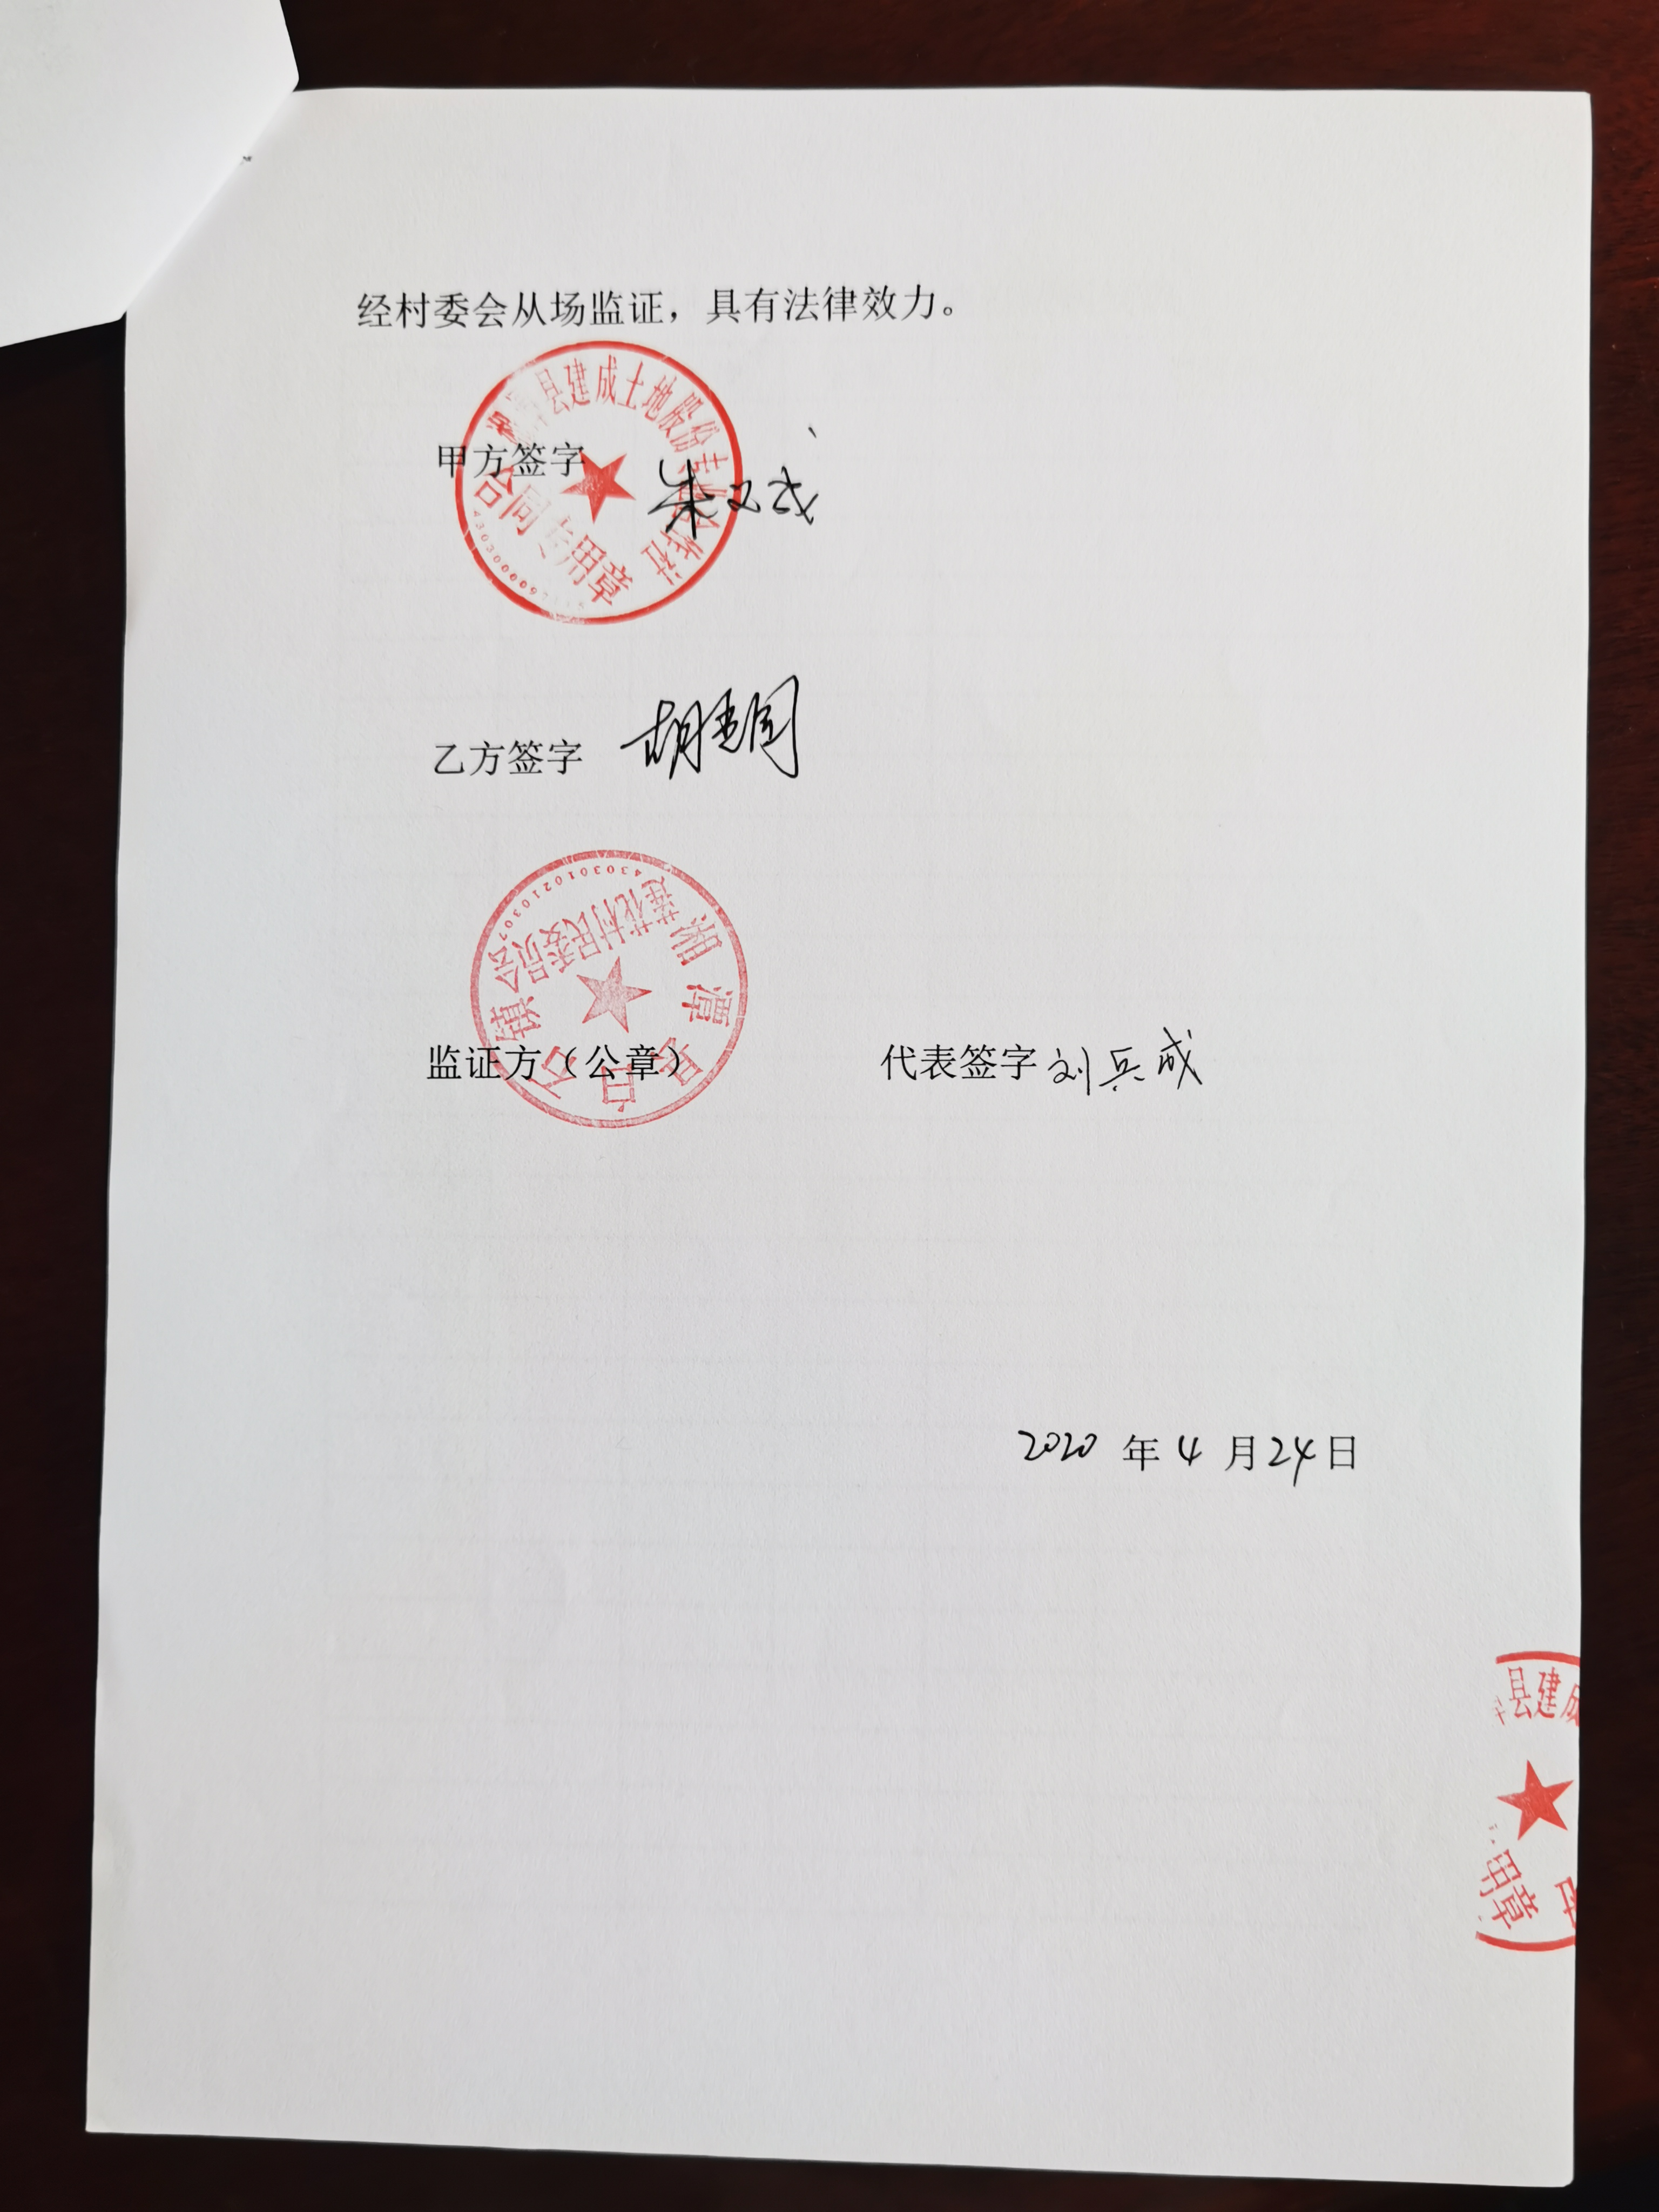 经村委会从场监证，具有法律效力。
县建成土地股份专业合作社
合同专用章
甲方签字
乙方签字 胡
湘潭县白石镇
莲花村民委员会
4303010210307
监证方（公章） 代表签字 刘兵成
2020 年 4 月 24 日
县建成
用章